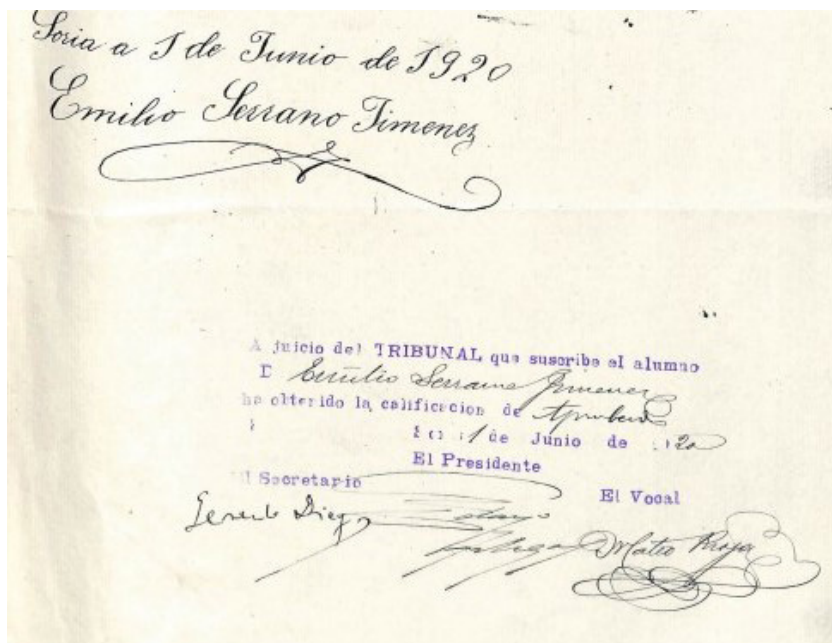 Soria a 1 de Junio de 1920
Emilio Serrano Jimenez
A juicio del TRIBUNAL que suscribe el alumno
D Emilio Serrano Jimenez
ha obtenido la calificacion de Aprobado
1 de Junio de 20
El Presidente
El Secretario
El Vocal
Gerardo Diego